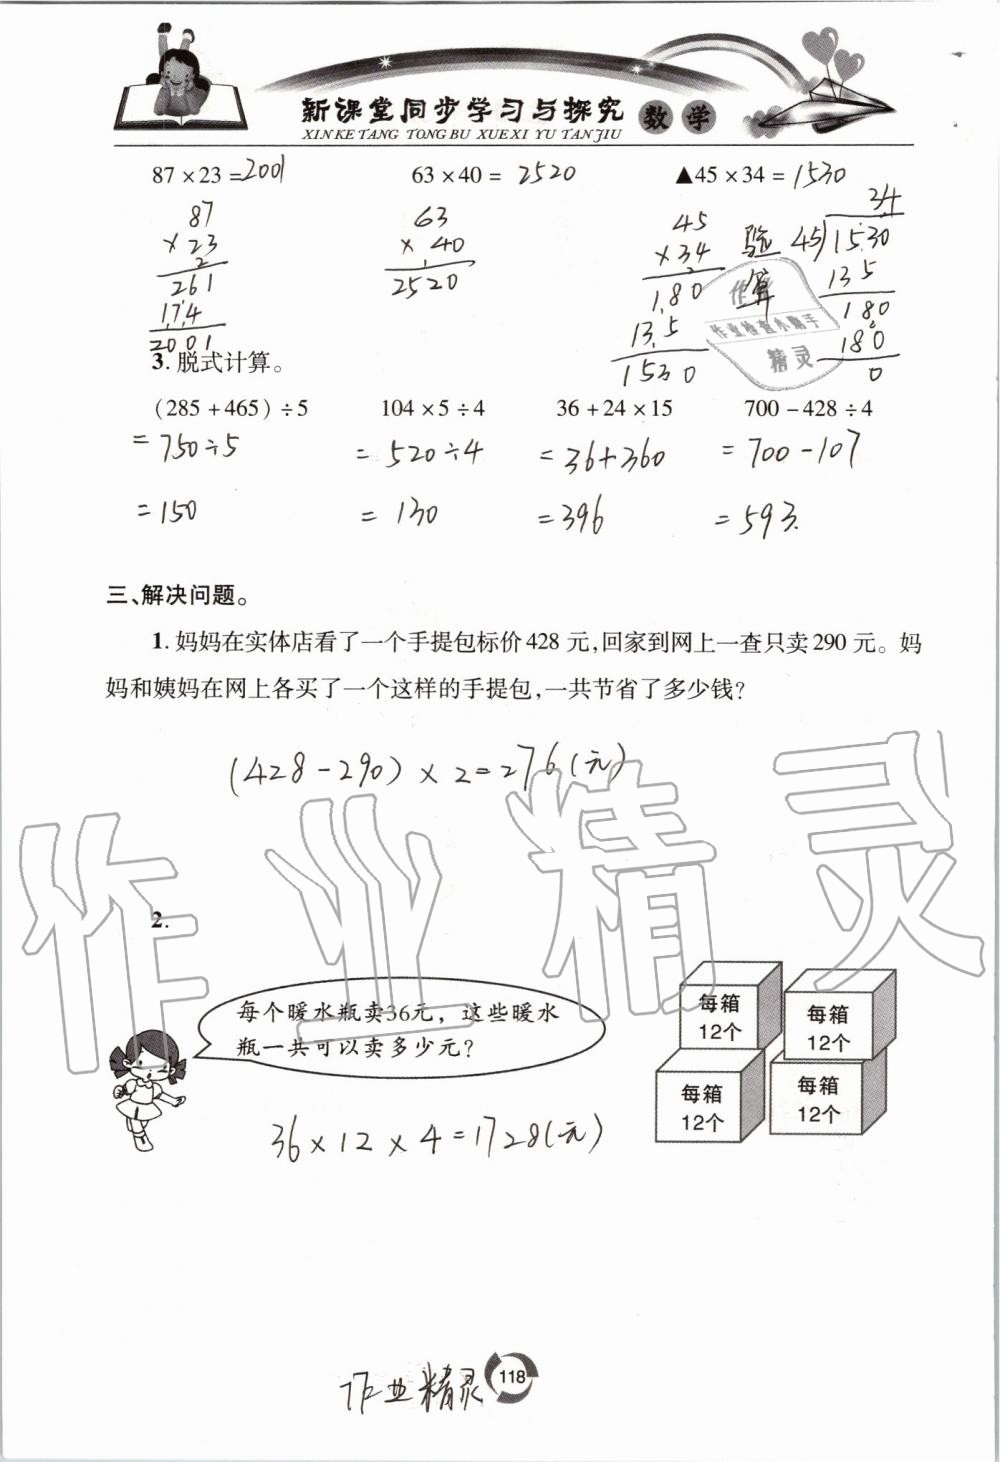 新课堂同步学习与探究 数学
XIN KE TANG TONG BU XUE XI YU TAN JIU
87×23=2001 63×40=2520 ▲45×34=1530
87
×23
2
261
174
2001
63
×40
1
2520
45
×34
2
180
135
1530
验算
34
45)1530
135
180
180
0
作业
作业检查小助手
精灵
3. 脱式计算。
(285+465)÷5 104×5÷4 36+24×15 700-428÷4
=750÷5 =520÷4 =36+360 =700-107
=150 =130 =396 =593.
三、解决问题。
1. 妈妈在实体店看了一个手提包标价428元,回家到网上一查只卖290元。妈
妈和姨妈在网上各买了一个这样的手提包,一共节省了多少钱?
(428-290)×2=276(元)
作业精灵
2.
每个暖水瓶卖36元，这些暖水
瓶一共可以卖多少元?
每箱
12个
每箱
12个
每箱
12个
每箱
12个
36×12×4=1728(元)
作业精灵
118